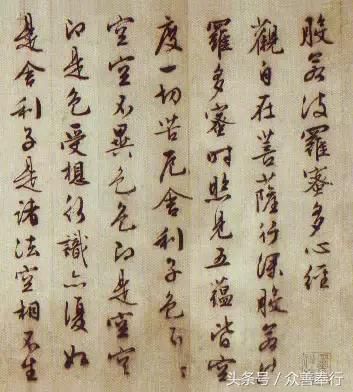 般若波羅蜜多心經
觀自在菩薩行深般若
羅多蜜時照見五蘊皆空
度一切苦厄舍利子色不
空空不異色色即是空空
即是色受想行識亦復如
是舍利子是諸法空相不生
头条号 / 众善奉行